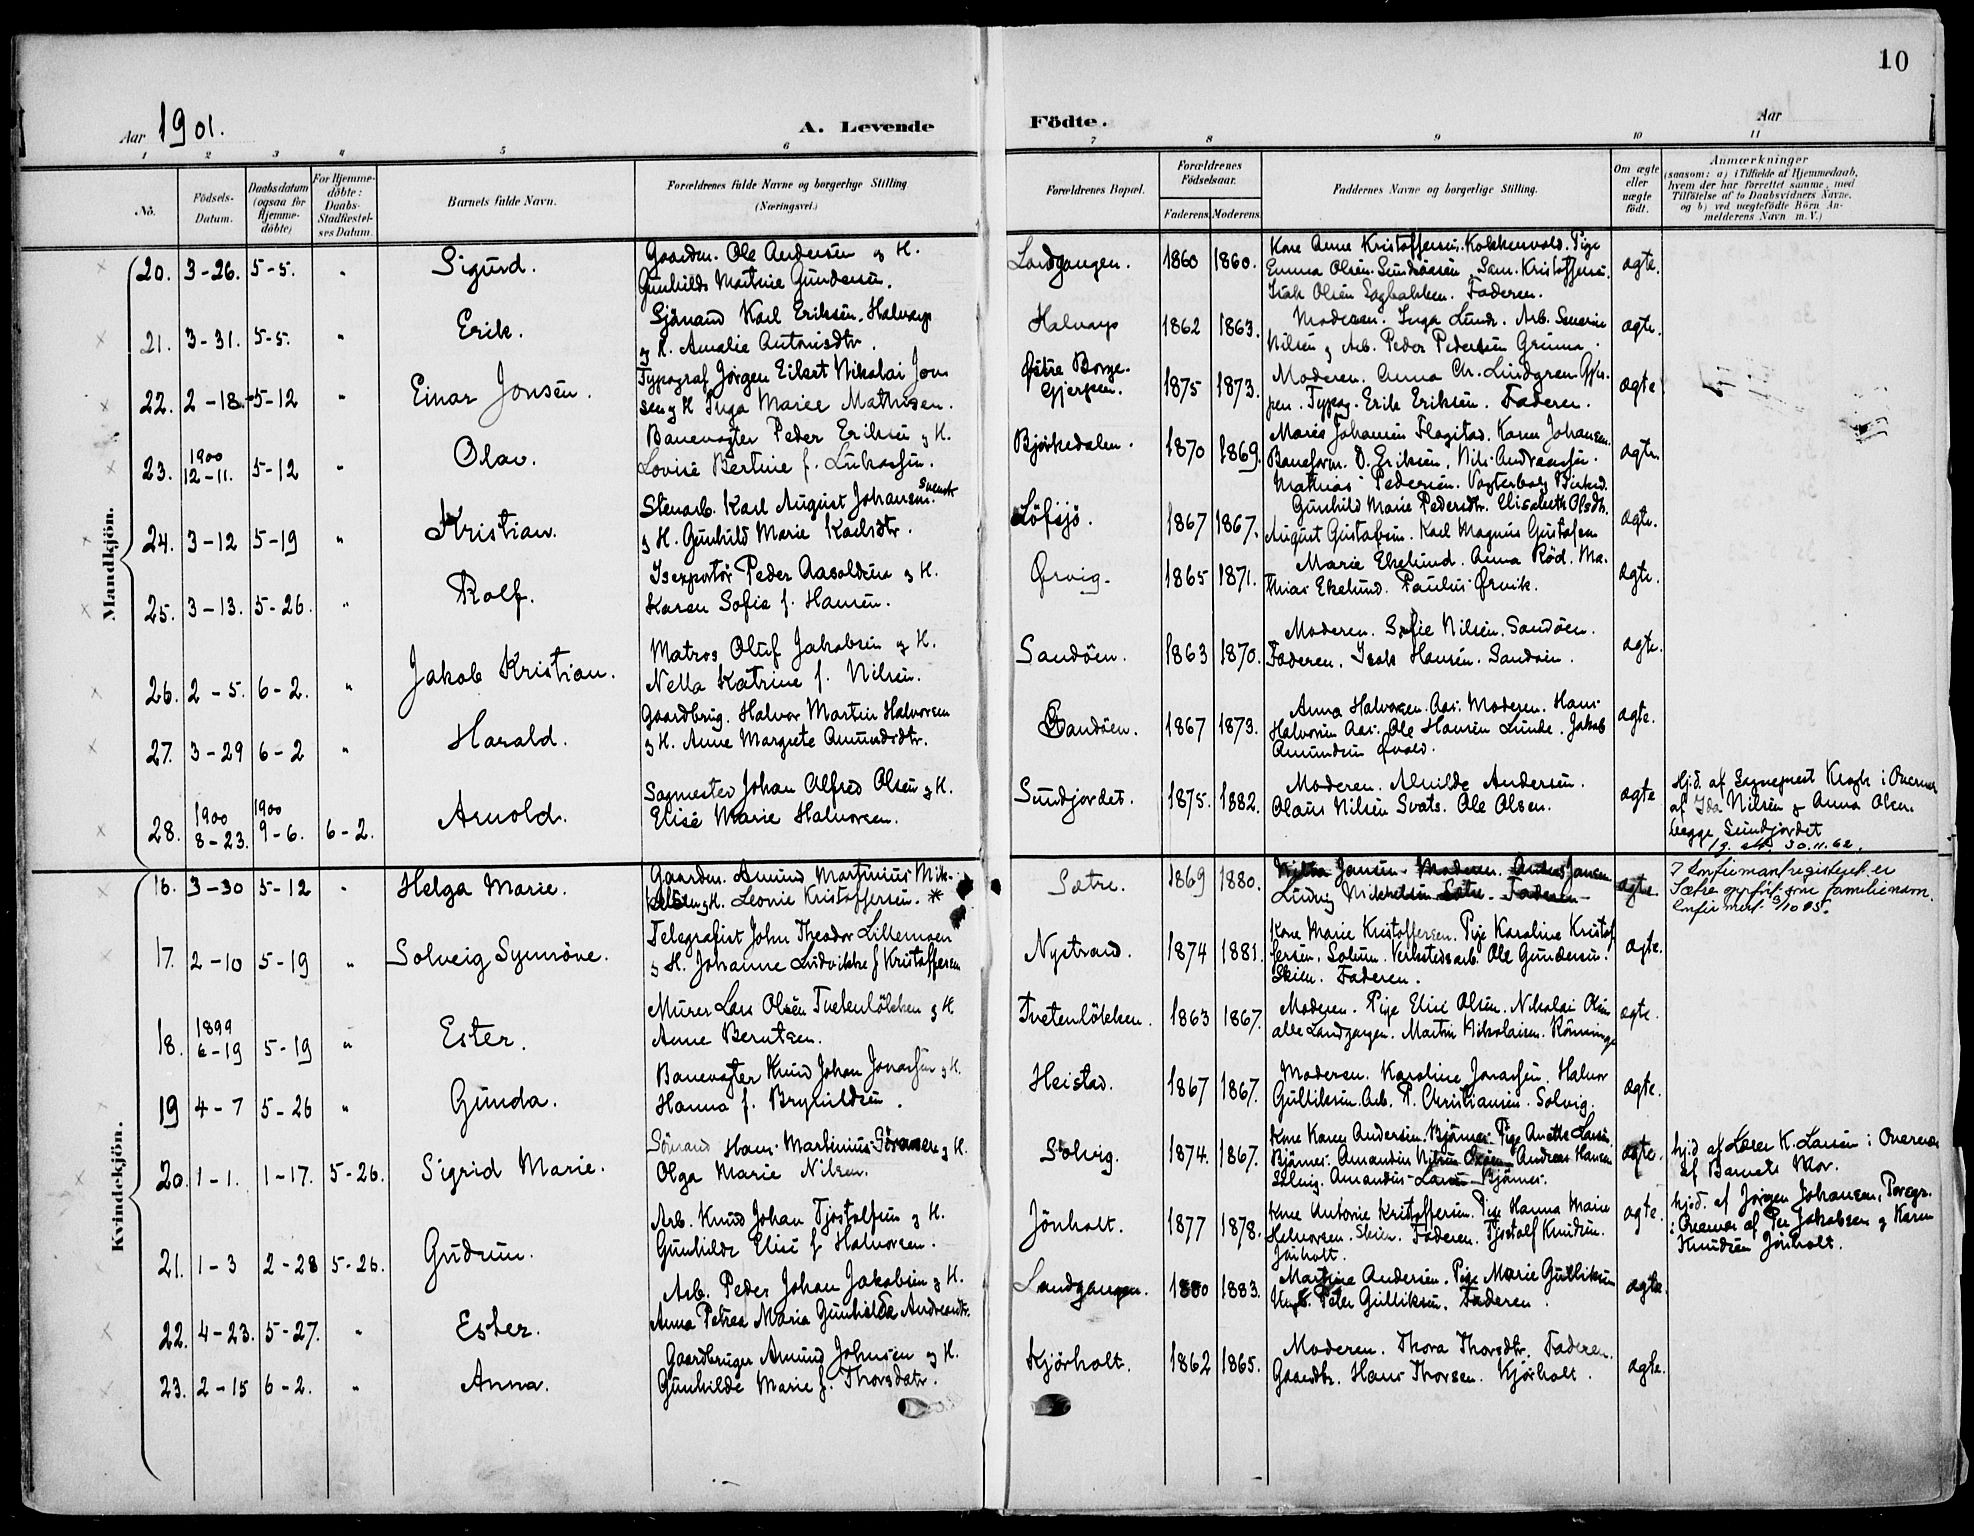 10
Aar 1901.
A. Levende Födte.
Aar
1 2 3 4 5 6 7 8 9 10 11
No.
Födsels-Datum.
Daabsdatum (ogsaa for Hjemme-döbte)
For Hjemme-döbte: Daabs-Stadfæstel-ses Datum.
Barnets fulde Navn.
Forældrenes fulde Navne og borgerlige Stilling (Næringsvei.)
Forældrenes Bopæl.
Forældrenes Födselsaar.
Faderens. Moderens.
Faddernes Navne og borgerlige Stilling.
Om ægte eller uægte födt.
Anmærkninger
(saasom: a) i Tilfælde af Hjemmedaab, hvem der har forrettet samme, med Tilföielse af to Daabsvidners Navne, og b) ved uægtefödte Börn Anmelderens Navn m. V.)
Mandkjön.
20. 3-26. 5-5. " Sigurd.
Gaardm. Ole Andersen og H.
Gunhilds Martine Gundersen.
Landgangen. 1860 1860.
Kone Anne Kristoffersen. Kokkenvold. Pige
Emma Olsen. Sundsaasen. Sam. Kristoffersen.
Isak Olsen Sagbakken. Faderen.
ægte.
21. 3-31. 5-5. " Erik.
Sjömand Karl Eriksen. Halvarp
og H. Amalie Antonisdtr.
Halvarp 1862 1863.
Moderen. Inga Lund. Arb. Severin
Nilsen og Arb. Peder Pedersen Grinna.
ægte.
22. 2-18. 5-12 " Einar Jonsen.
Typograf Jörgen Eilert Nikolai Jon
sen og H Inga Marie Mathisen.
Östre Borge.
Gjerpen. 1875 1873.
Moderen. Anna Chr. Lindgren Gjer-
pen. Typog. Erik Eriksen. Faderen.
ægte
23. 1900 12-11. 5-12 " Olav.
Banevogter Peder Eriksen og H.
Lovise Bertine f. Lukassen.
Bjørkedalen. 1870 1869.
Marie Johansen Flogstad. Karen Johansen.
Baneform. O. Eriksen. Nils Andreassen.
Mathias Pedersen. Vogterbolg Birked.
ægte.
24. 3-12 5-19 " Kristian.
Stenarb. Karl August Johansen. Svensk
og H. Gunhild Marie Karlsdtr.
Löfsjö. 1867 1867.
Gunhild Marie Pedersdtr. Elisabeth Olsdtr.
August Gustafsen. Karl Magnus Gustafsen
ægte.
25. 3-13. 5-26. " Rolf.
Isexportör Peder Aasoldsen og H.
Karen Sofie f. Hansen.
Ørvig. 1865 1871.
Marie Ekelund. Anna Röd. Ma-
thias Ekelund. Paulus Ørvik.
ægte.
26. 2-5. 6-2. " Jakob Kristian.
Matros Oluf Jakobsen og H.
Nella Katrine f. Nilsen.
Sandöen. 1863 1870.
Moderen. Sofie Nilsen. Sandöen.
Faderen. Isak Hansen. Sandöen.
ægte.
27. 3-29 6-2 " Harald.
Gaardbrug. Halvor Martin Halvorsen
og H. Anne Margrete Amundsdtr.
Sandöen. 1867 1873.
Anna Halvorsen. Aas. Moderen. Hans
Halvorsen Aas. Ole Hansen Lunde. Jakob
Amundsen
ægte.
28. 1900 8-23. 1900 9-6. 6-2. Arnold.
Sagmester Johan Alfred Olsen og H.
Elise Marie Halvorsen.
Sundjordet. 1875. 1882.
Moderen. Alvilde Andersen.
Olaus Nilsen Svats. Ole Olsen.
ægte
Hjd. af Sognepræst Krogh i Overvær
af Ida Nilsen og Anna Olsen.
begge Sundjordet
30.11.62.
Kvindekjön.
16. 3-30 5-12 " Helga Marie.
Gaardm. Amund Martinius Mik-
kelsen og H. Leonie Kristoffersen. *
Sætre. 1869 1880.
Jansen Moderen. Anders Jansen
Ludvig Mikkelsen Sætre Faderen
ægte
I konfirmantregisteret er
Sætre oppført som familienavn.
17. 2-10 5-19 " Solveig Synnöve.
Telegrafist John Theodor Lillemoen
og H. Johanne Ludvikke f Kristoffersen
Nystrand. 1874 1881.
Kone Marie Kristoffersen. Pige Karoline Kristof
fersen. Solum. Verkstedsarb. Ole Gundersen.
Skien. Faderen.
ægte.
18. 1899 6-19 5-19 " Ester.
Murer Lars Olsen Tvetenlökken og H
Anne Berntsen.
Tvetenlökken. 1863 1867.
Moderen. Pige Elise Olsen. Nikolai Olsen
alle Landgangen. Martin Nikolaisen. Rönningen
ægte.
19 4-7 5-26 " Gunda.
Banevogter Knud Johan Jonassen og H.
Hanna f. Brynildsen.
Heistad. 1867 1867.
Moderen. Karoline Jonassen. Halvor
Gulliksen. Arb. P. Christiansen. Solvig.
ægte.
20. 1-1. 1-17. 5-26. Sigrid Marie.
Sömand Hans Martinius Göransen og H.
Olga Marie Nilsen.
Solvig. 1874. 1867.
Kone Karen Andersen. Bjönnes. Pige Anette Larsen.
Bjönnes. Amandus Andreas Hansen
Solvig. Amandus Larsen Bjönnes.
ægte.
hjd af Lærer K. Larsen i Overvær
af Barnets Mor.
21. 1-3 2-28 5-26. Gudrun.
Arb. Knud Johan Tjostolfsen og H.
Gunhilde Elise f. Halvorsen.
Jönholt. 1877 1878.
Kone Antonie Kristoffersen. Pige Hanna Marie
Halvorsen. Skien. Faderen. Tjostolf Knudsen.
Jönholt.
ægte.
hjd. af Jörgen Johansen, Porsgr.
i Overvær af Per Jakobsen og Karen
Knudsen Jönholt.
22. 4-23. 5-27. " Ester.
Arb. Peder Johan Jakobsen og H.
Anna Petrea Maria Gunhilda Andreasdtr.
Landgangen. 1880 1883.
Martine Andersen. Pige Marie Gulliksen
Ungk. Peter Gulliksen. Faderen.
ægte.
23. 2-15 6-2. " Anna.
Gaardbruger Amund Johnsen og H.
Gunhilde Marie f. Thorsdatr.
Kjörholt. 1862 1865.
Moderen. Thora Thorsdtr. Faderen.
Gaardbr. Hans Thorsen. Kjörholt.
ægte.